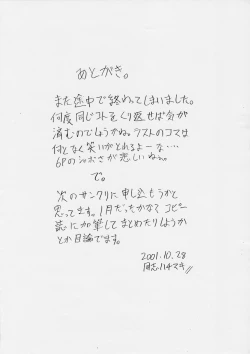 あとがき。
また途中で終わってしまいました。
何度同じコトをくり返せば気が
済むのでしょうかね。ラストのコマは
何となく笑いがとれるよーな・・・・
6Pの
が悲しいねぇ。
で。
次のサンクリに申し込もうかと
思ってます。1月だったかな？コピー
誌に加筆してまとめたりしようか
とか目論でます。
2001.10.28
ハチマキ